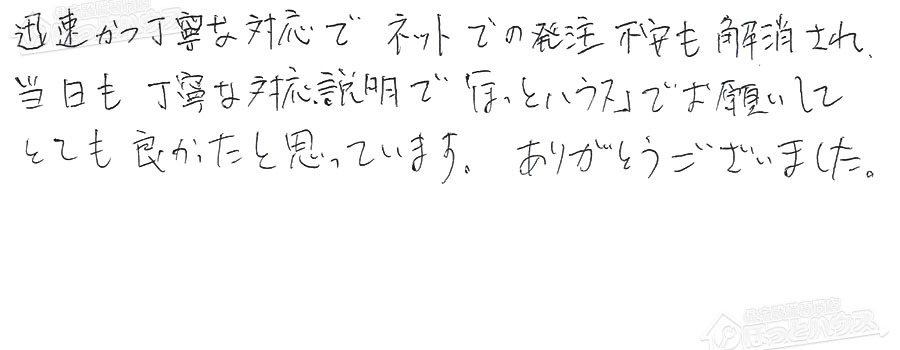 迅速かつ丁寧な対応で ネットでの発注不安も解消され、
当日も 丁寧な対応、説明で「ほっとハウス」でお願いして
とても良かったと思っています。ありがとうございました。
住宅設備専門店
ほっとハウス